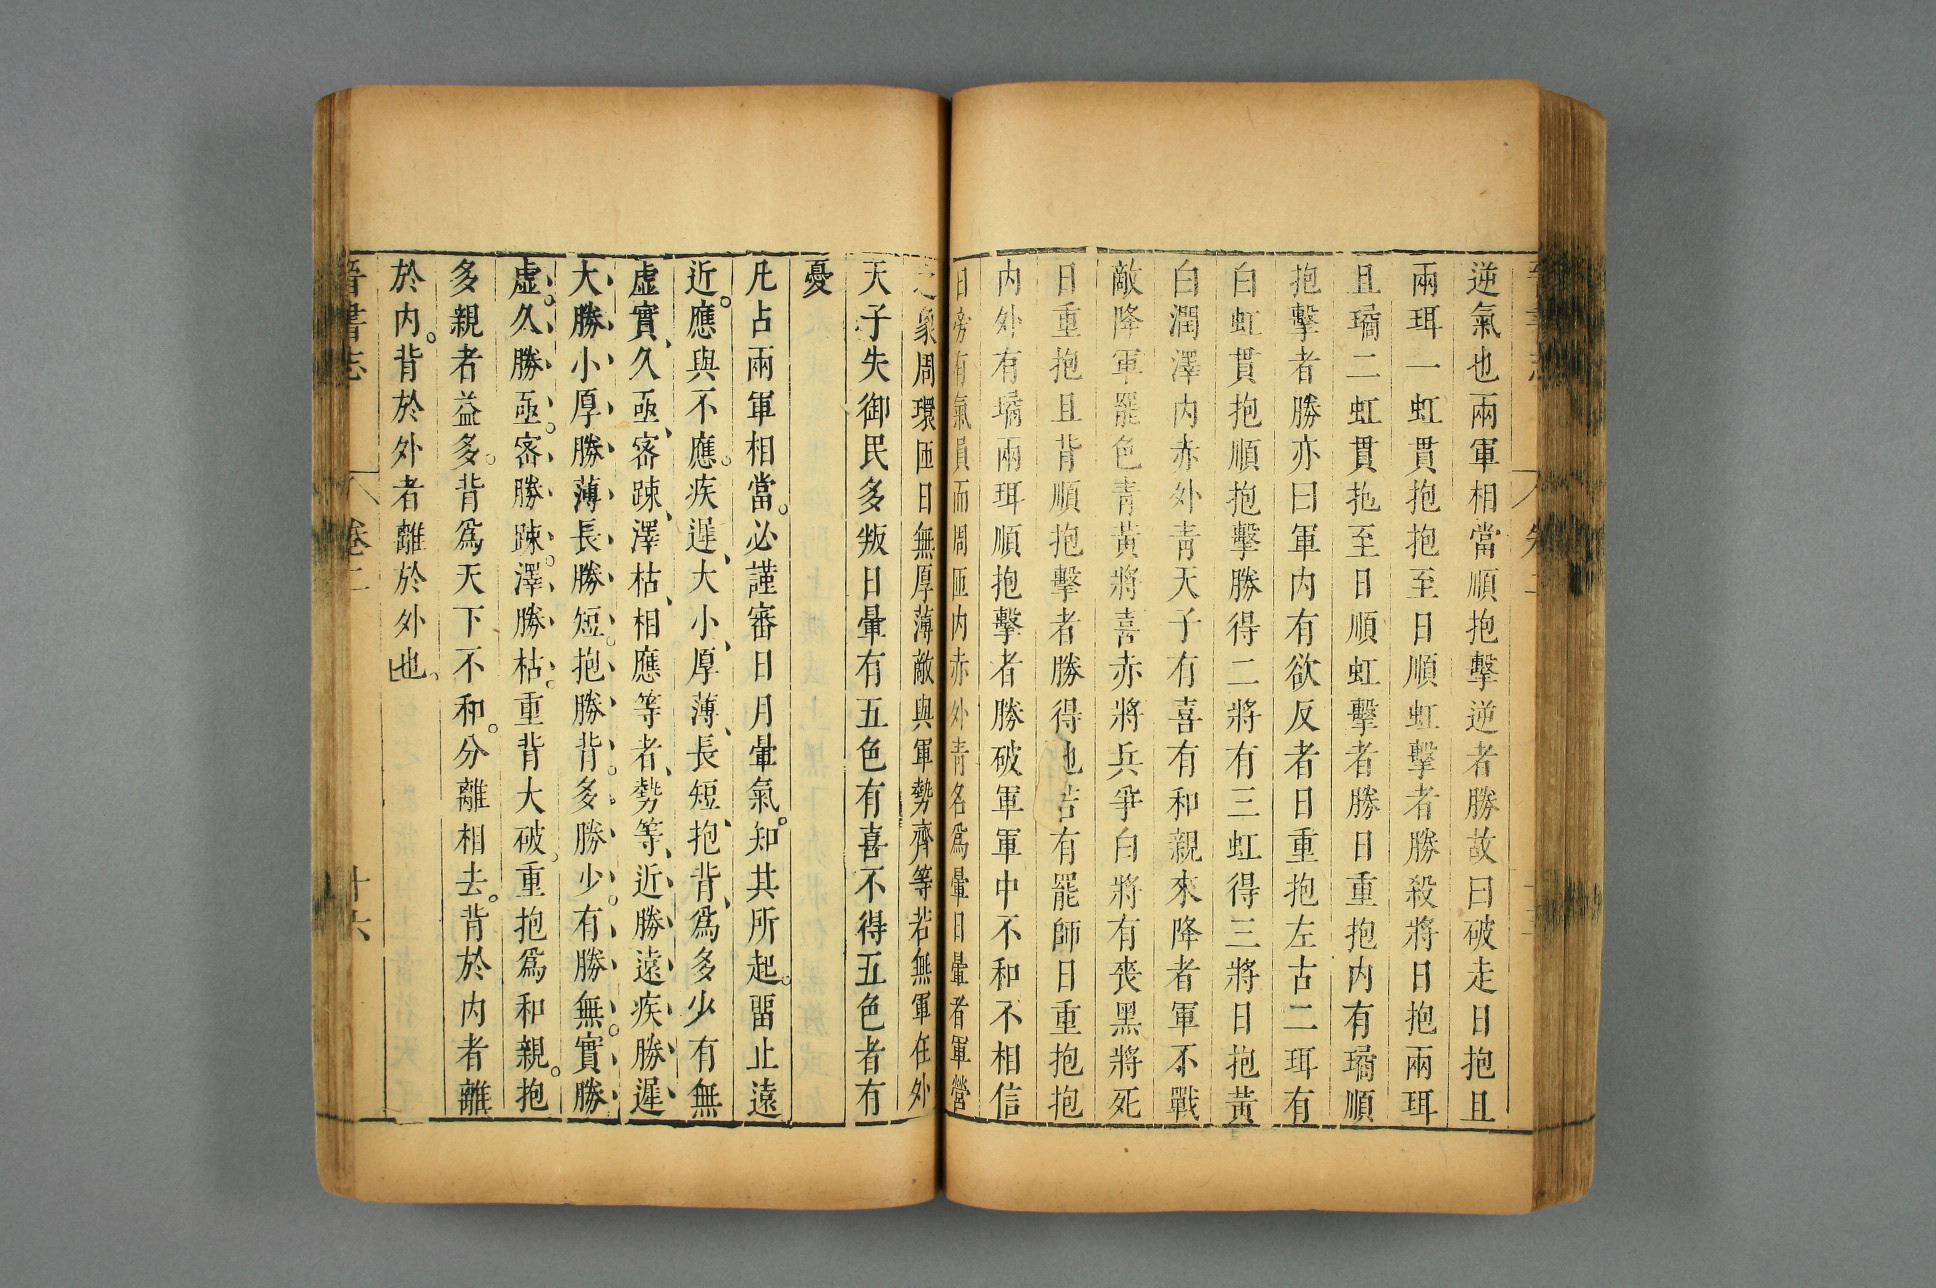 逆氣也兩軍相當順抱擊逆者勝故曰破走日抱且
兩珥一虹貫抱抱至日順虹擊者勝殺將日抱兩珥
且璚二虹貫抱至日順虹擊者勝日重抱内有璚順
抱擊者勝亦曰軍内有欲反者日重抱左右二珥有
白虹貫抱順抱擊勝得二將有三虹得三將日抱黃
白潤澤内赤外青天子有喜有和親來降者軍不戰
敵降軍罷色青黃將喜赤將兵爭白將有喪黑將死
日重抱且背順抱擊者勝得地若有罷師日重抱抱
内外有璚兩珥順抱擊者勝破軍軍中不和不相信
日旁有氣員而周匝内赤外青名爲暈日暈者軍營
之象周環匝日無厚薄敵與軍勢齊等若無軍在外
天子失御民多叛日暈有五色有喜不得五色者有
憂
凡占兩軍相當。必謹審日月暈氣。知其所起。畱止遠
近。應與不應。疾遲、大小、厚薄、長短、抱背、爲多少有無
虛實、久亟、密踈、澤枯、相應等者、勢等、近勝遠疾勝遲
大勝小厚勝薄長勝短。抱勝背。多勝少。有勝無。實勝
虛。久勝亟。密勝踈。澤勝枯。重背大破。重抱爲和親。抱
多親者益多。背爲天下不和。分離相去。背於内者離
於内。背於外者離於外也。
晉書志
卷二
十六